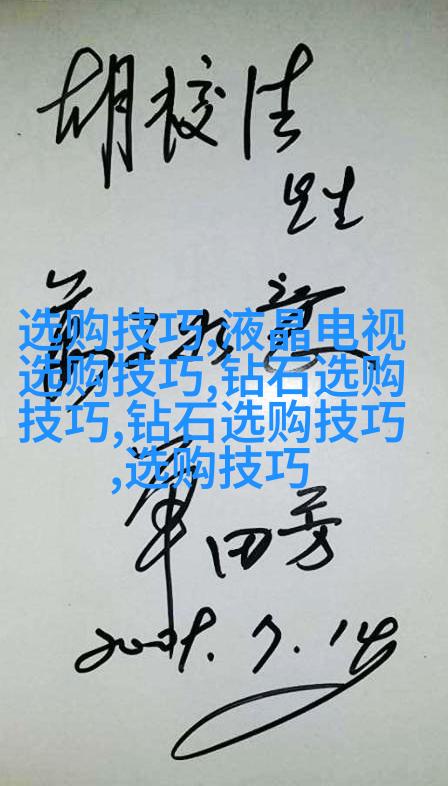 胡校
先生
选购技巧,液晶电视
选购技巧,钻石选购
技巧,钻石选购技巧
,选购技巧
单田芳